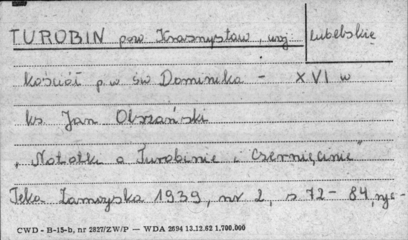 TUROBIN pow Krasnystaw, woj. Lubelskie
kościół p.w św Dominika - XVI w
ks Jan Olszański
"Notatki o Turobinie i Czernięcinie"
Teka Zamojska 1939, nr 2, s 72-84, ryc-
CWD - B-15-b, nr 2827/ZW/P — WDA 2694 13.12.62 1.700.000